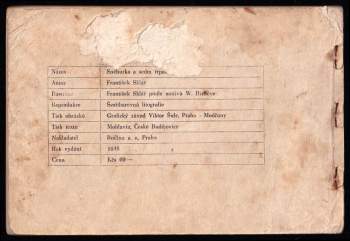 Název Sněhurka a sedm trpas
Autor František Sklář
František Sklář podle motivů W.
Reprodukce Šestibarevná litografie
Tisk obrázků Grafický závod Viktor Šulc, Praha - Modřany
Tisk textu Moldavia, České Budějovice
Nakladatel a. s., Praha
Rok vydání
Cena Kčs